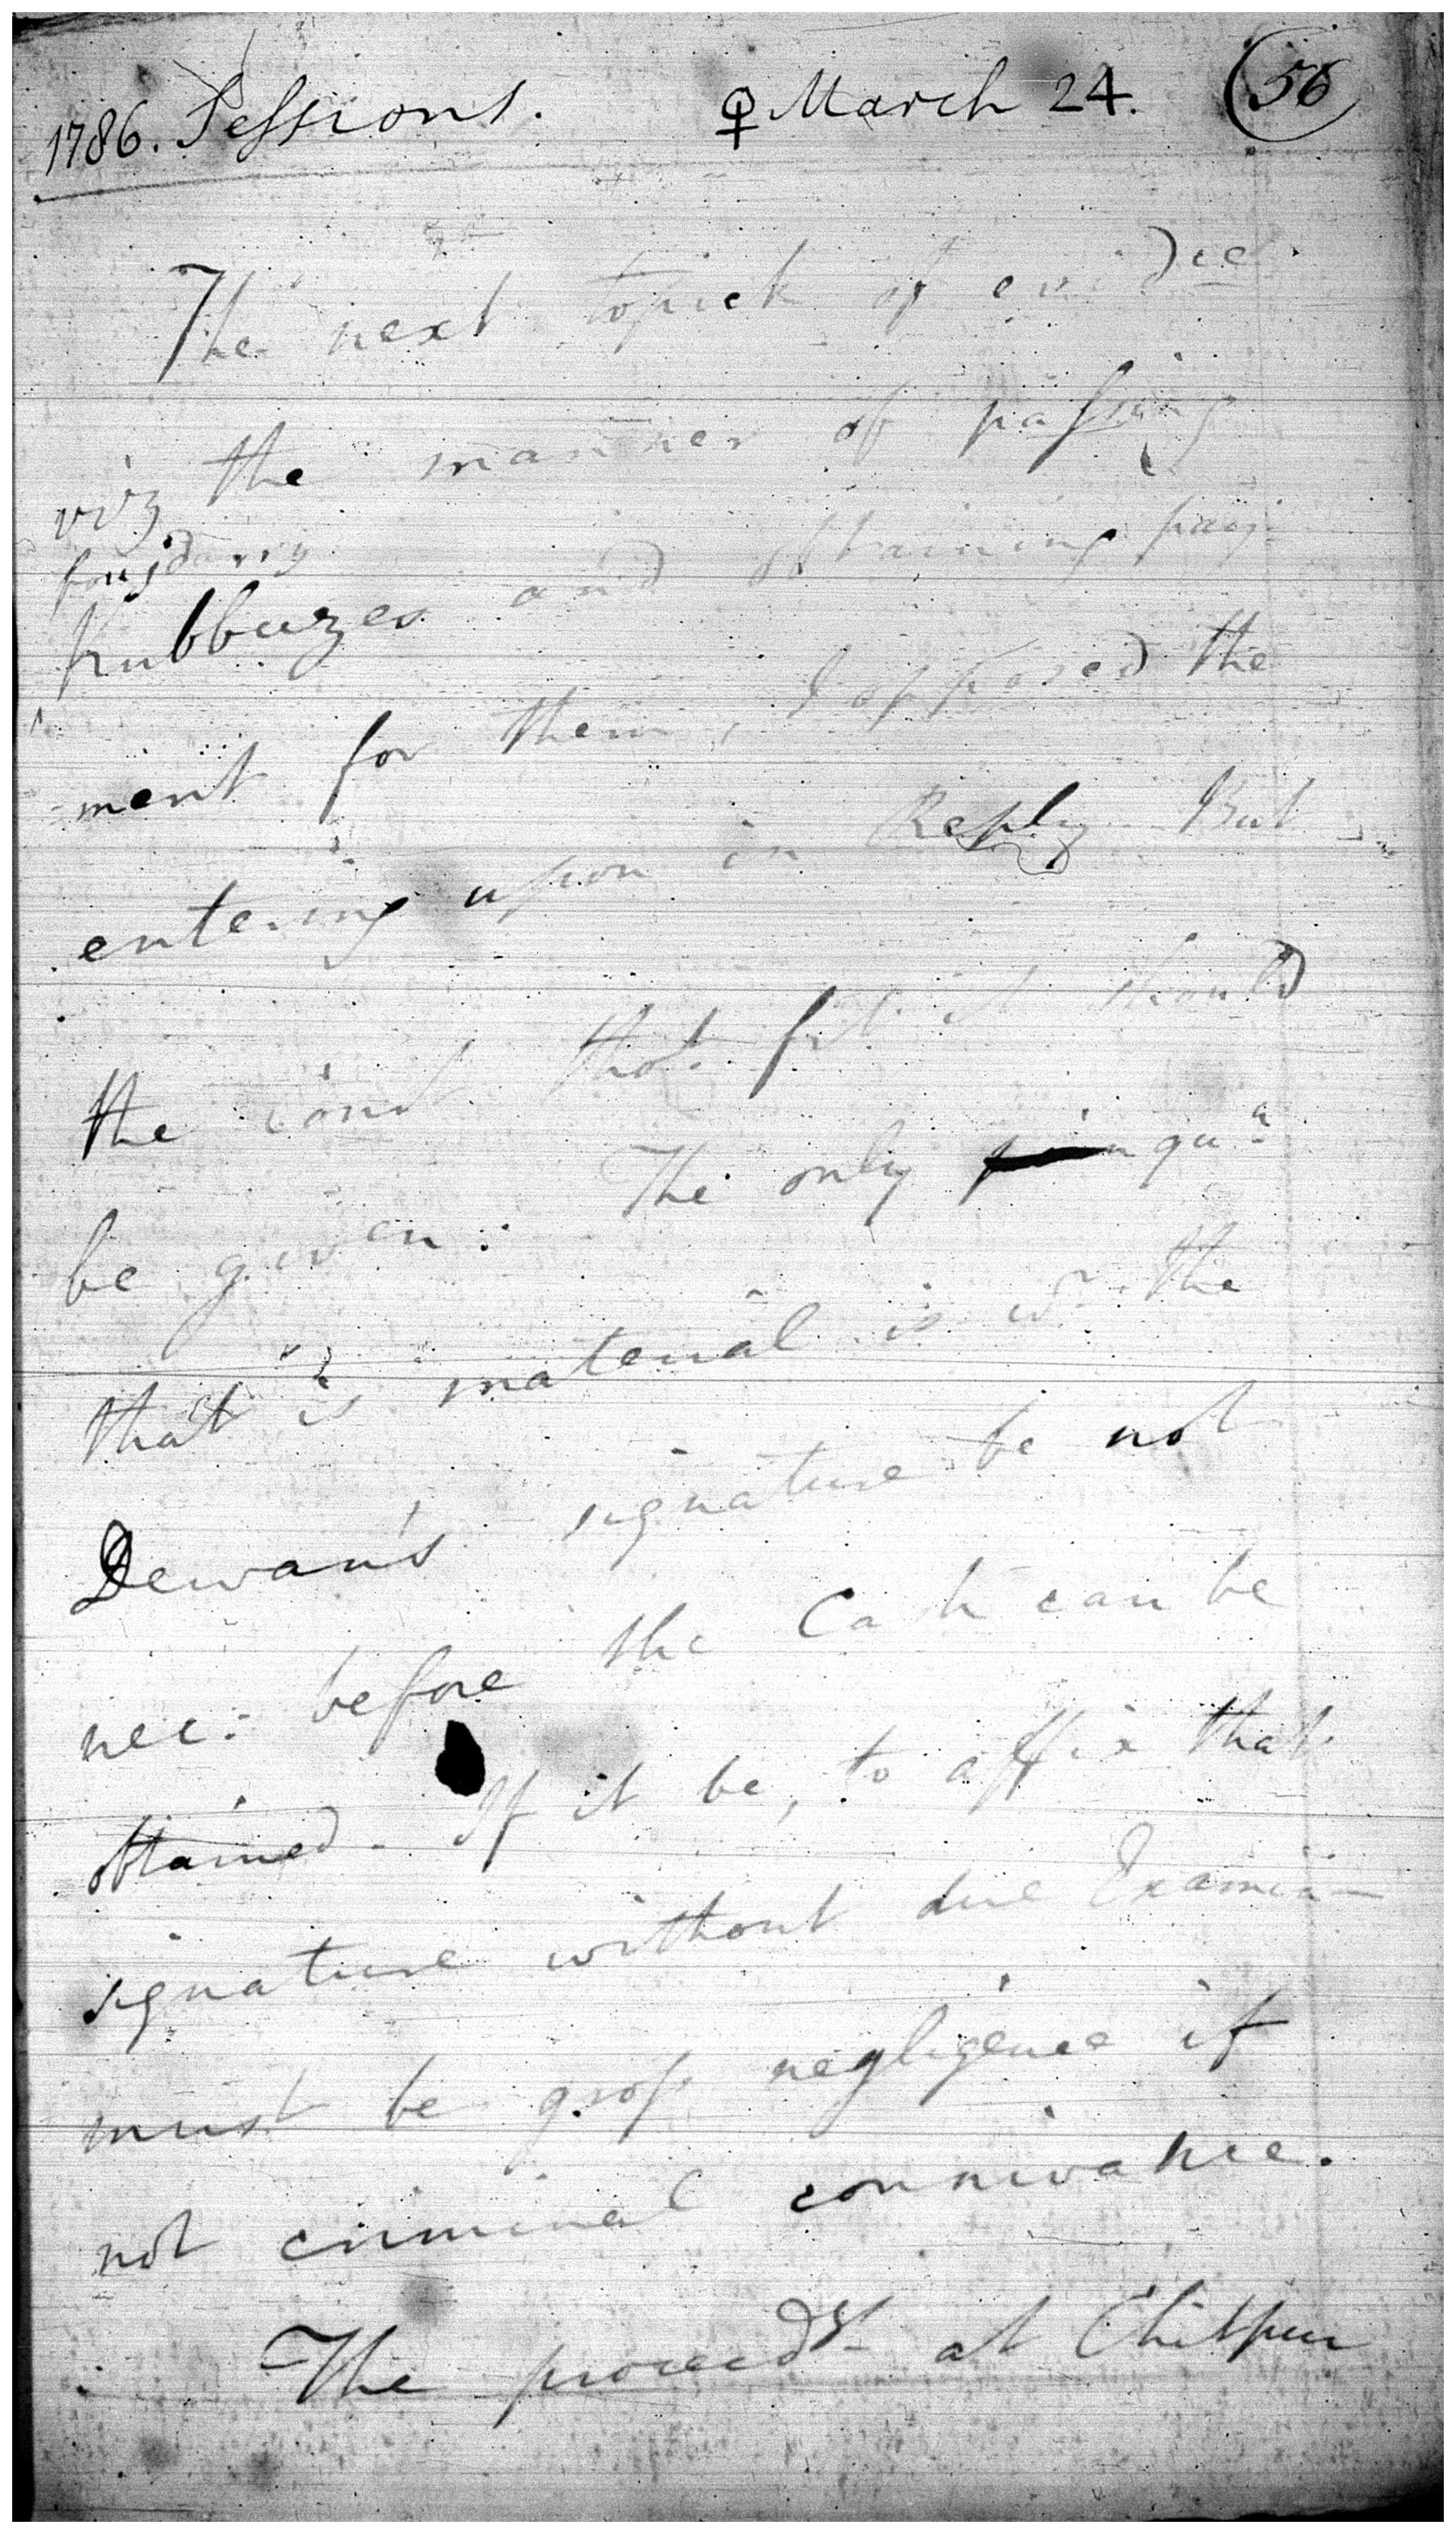 1786. Sessions. ♀ March 24. (56)
The next topick of evidce.
viz the manner of passing
foujdarry
Kubbuzes and obtaining pay-
-ment for them, I opposed the
entering upon in Reply But
the Court thot fit it should
be given: The only qun
that is material is wr. the
Dewan's signature be not
nec: before the Cash can be
obtained. If it be, to affix that
signature without due Examin-
must be gross negligence if
not criminal connivance.
The proceedgs at Chitpur